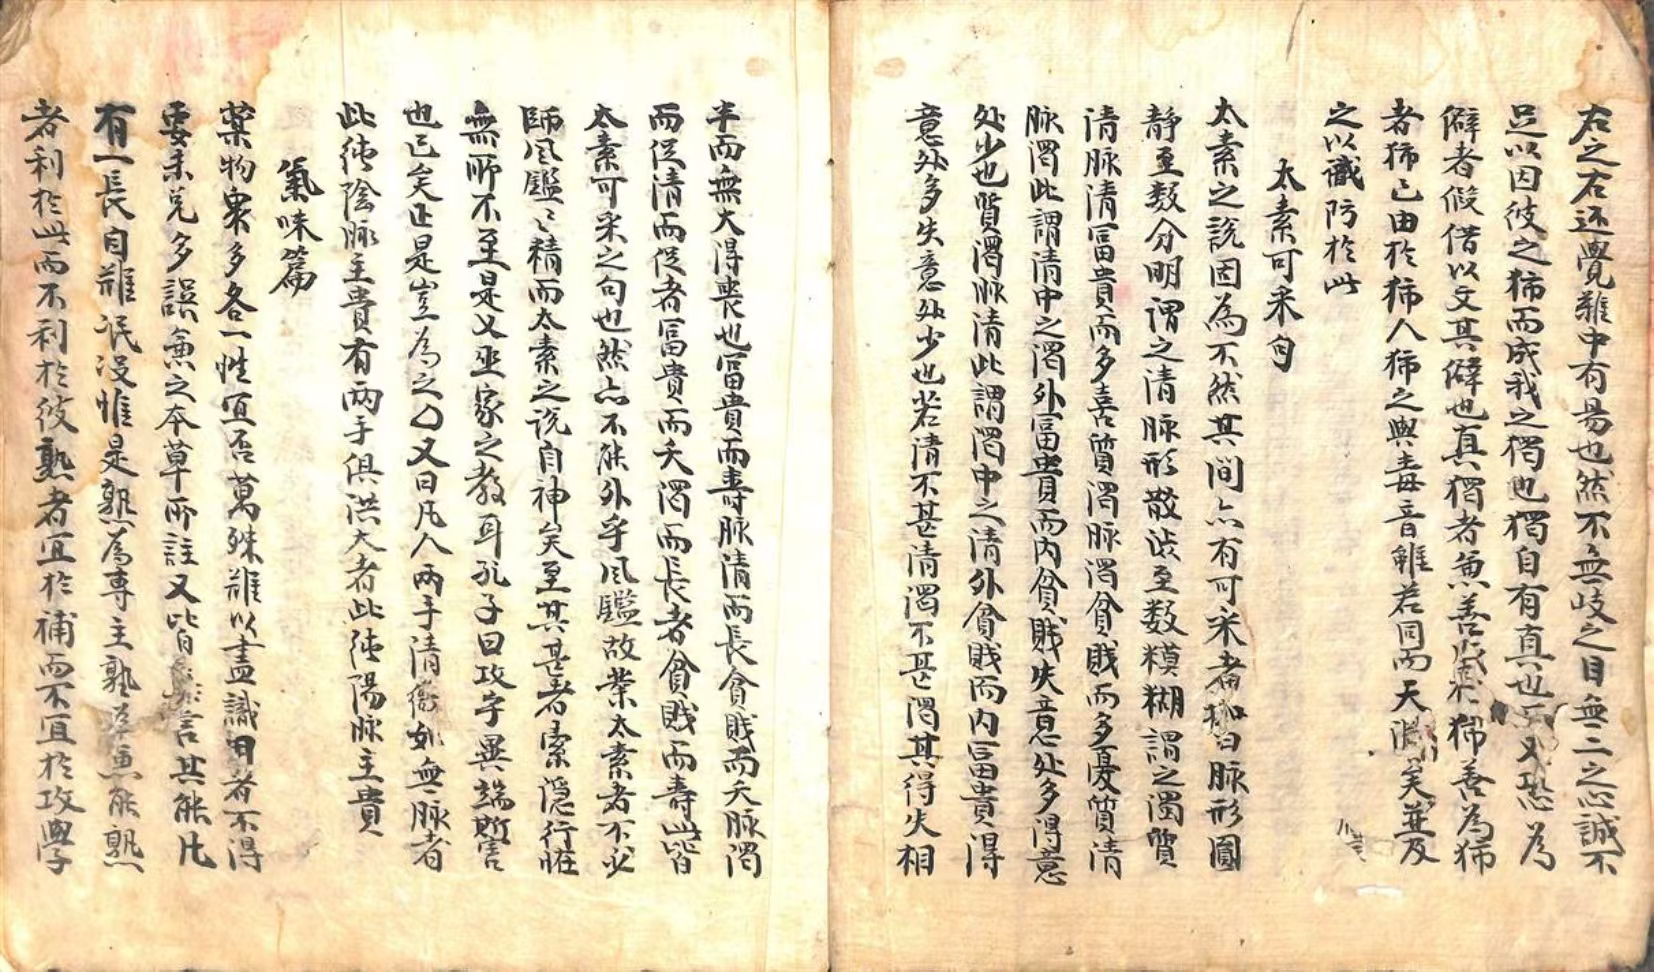 右之右还覺難中有易也然不無岐之目無二之心誠不
足以因彼之狮而成我之獨也獨自有真也又恐為
僻者假借以文其僻也真獨者無善狮善為狮
者狮已由於狮人狮之與毒音雖若同而天淵矣並及
之以識防於此
太素可采句
太素之說因為不然其间亦有可采者如曰脉形圓
静至数分明谓之清脉形散涩至数糢糊謂之濁質
清脉清富貴而多喜質濁脉濁貧賤而多憂質清
脉濁此謂清中之濁外富貴而内貧賤失意处多得意
处少也質濁脉清此謂濁中之清外貧賤而内富貴得
意处多失意处少也若清不甚清濁不甚濁其得失相
半而無大得喪也富貴而壽脉清而長貧賤而夭脉濁
而促清而促者富貴而夭濁而長者貧賤而壽此皆
太素可采之句也然亦不能外乎风鑑故業太素者不必
師风鑑〻精而太素之説自神矣至其甚者索隱行怪
無所不至是又巫家之教耳孔子曰攻乎異端斯害
也已矣正是豈為之〇又曰凡人兩手清微如無脉者
此純陰脉主貴有兩手俱洪大者此純陽脉主貴
氣味篇
藥物衆多各一性宜否萬殊難以盡識用者不得
要未免多誤兼之本草所註又皆言其能凡
有一長自難泯没惟是孰為專主孰為兼能孰
者利於此而不利於彼孰者宜於補而不宜於攻學